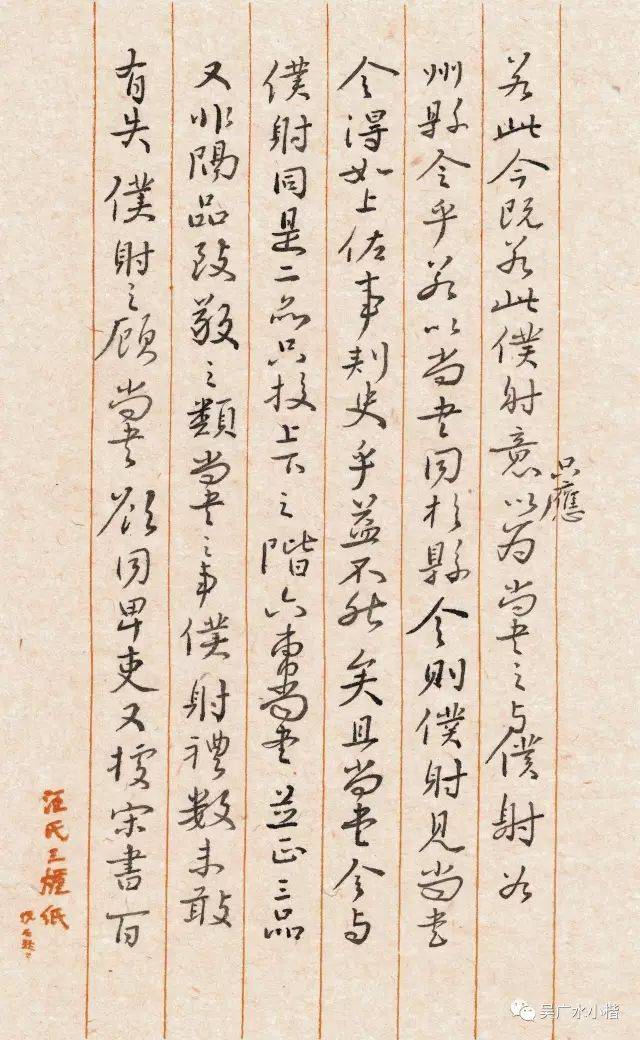 若此今既若此僕射意以為尚書之与僕射若
只應
州縣令乎若以尚書同於縣令則僕射見尚書
令得如上佐事刺史乎益不然矣且尚書令与
僕射同是二品只校上下之階六曹尚書並正三品
又非隔品致敬之類尚書之事僕射禮數未敢
有失僕射之顧尚書欲同卑吏又據宋書百
汪氏紙
吴广水小楷